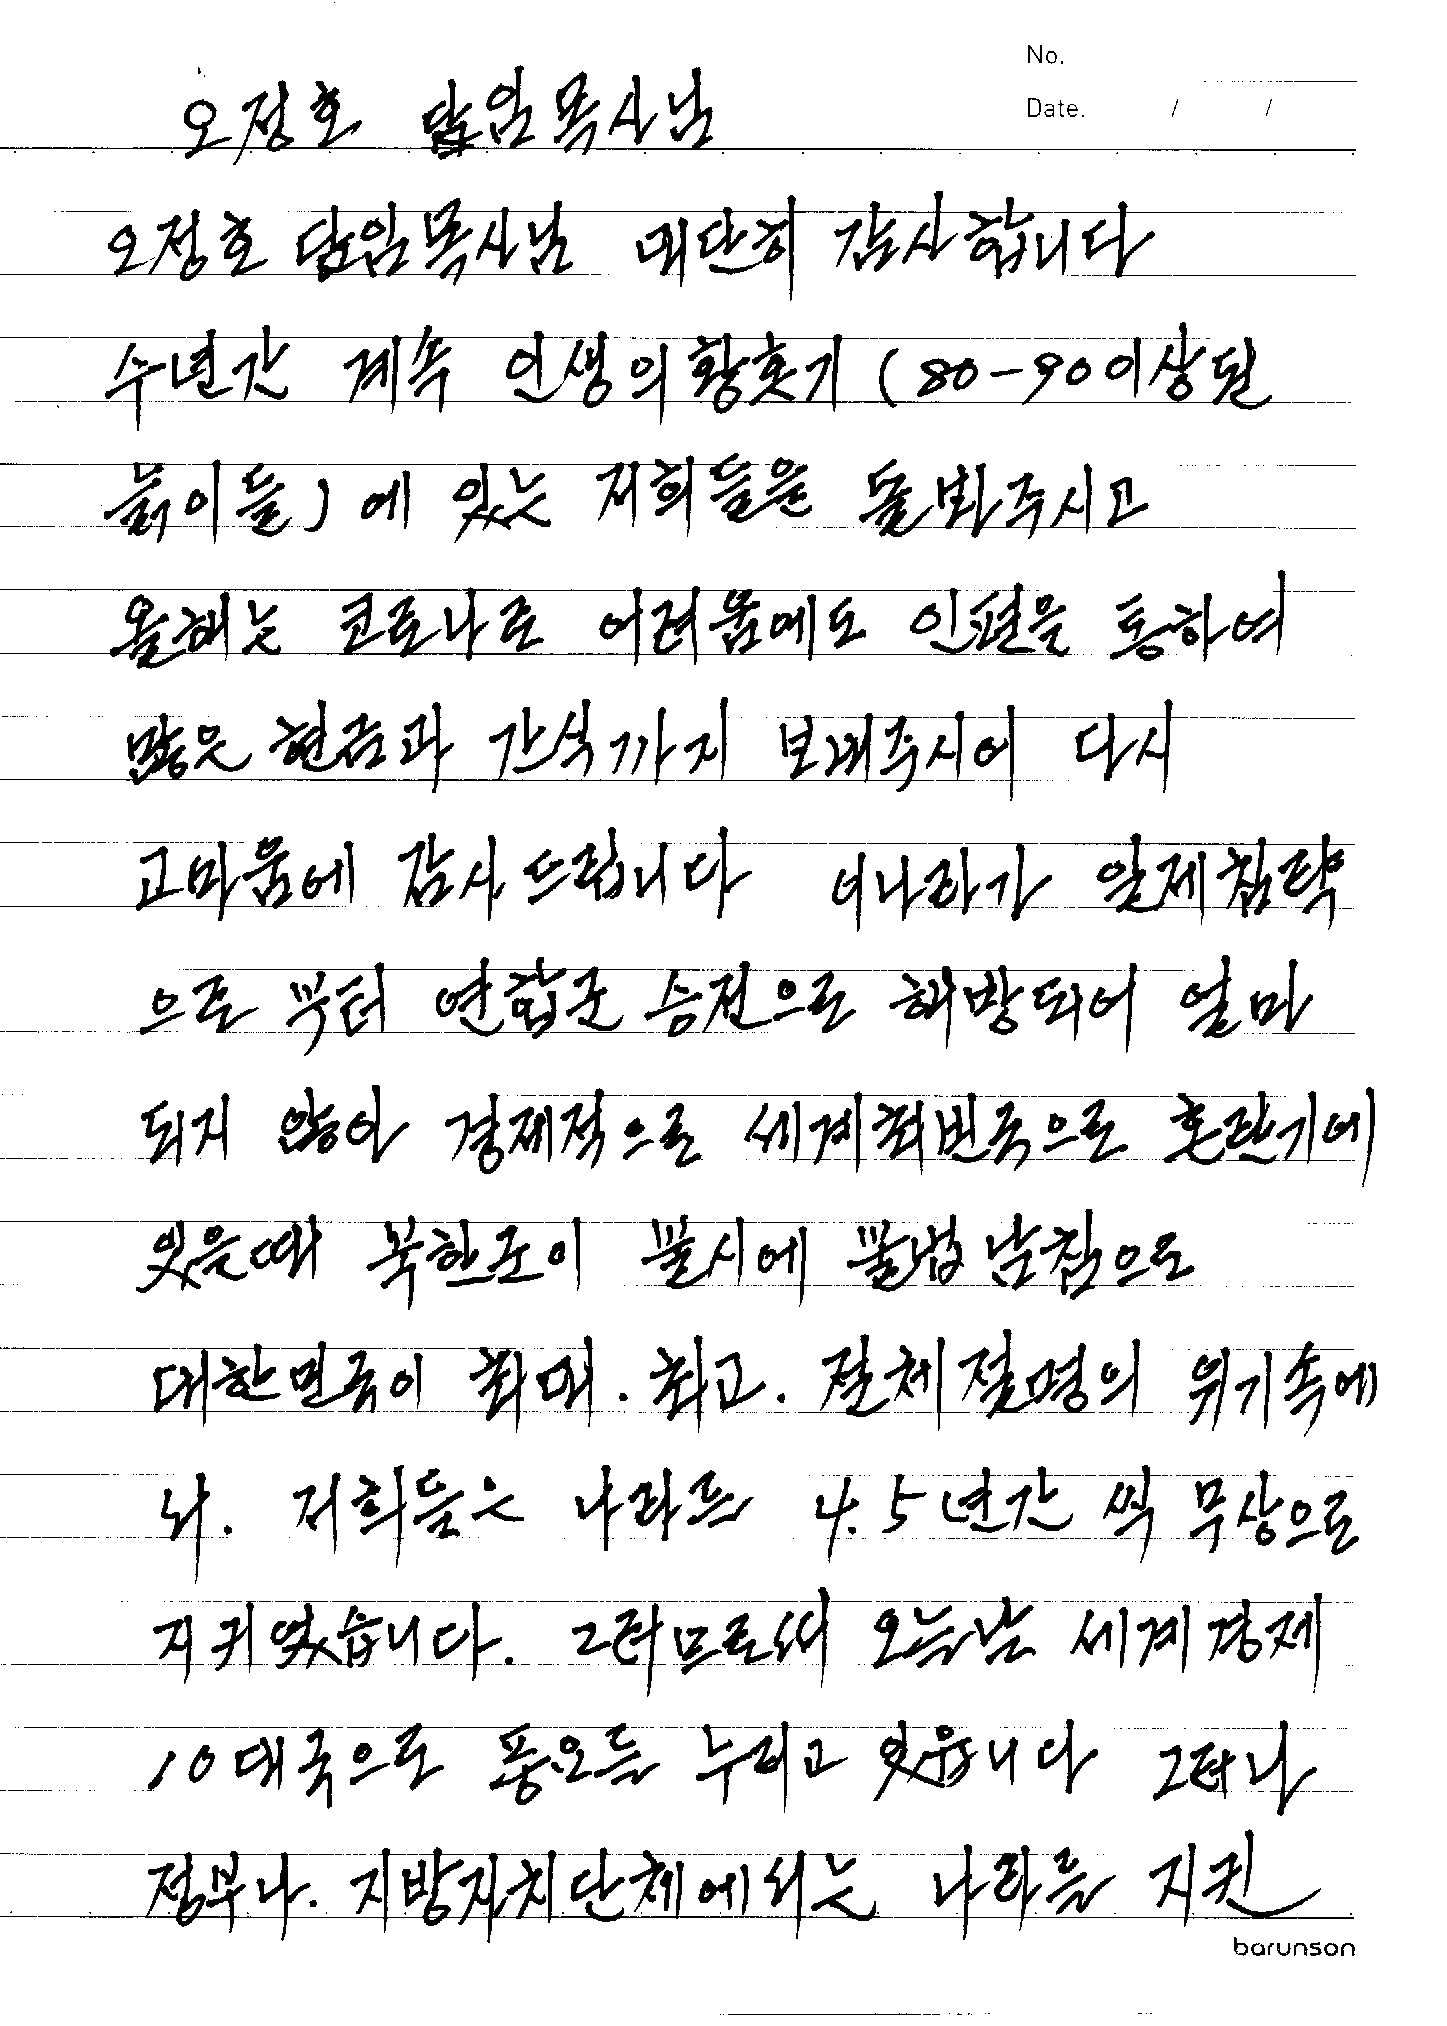 No.
Date. / /
오정호 담임목사님
오정호 담임목사님 대단히 감사합니다
수년간 계속 인생의 황혼기 (80-90이상된
늙이들)에 있는 저희들을 돌봐주시고
올해는 코로나로 어려움에도 인편을 통하여
많은 현금과 간식까지 보내주시어 다시
고마움에 감사드립니다 이나라가 일제침략
으로 부터 연합군 승전으로 해방되어 얼마
되지 않아 경제적으로 세계최빈국으로 혼란기에
있을때 북한군이 불시에 불법남침으로
대한민국이 최대. 최고. 절체절명의 위기속에
서. 저희들은 나라를 4.5년간 씩 무상으로
지키였습니다. 그럼므로써 오늘날 세계경제
10대국으로 풍요를 누리고 있읍니다 그러나
정부나. 지방자치단체에서는 나라를 지킨
barunson